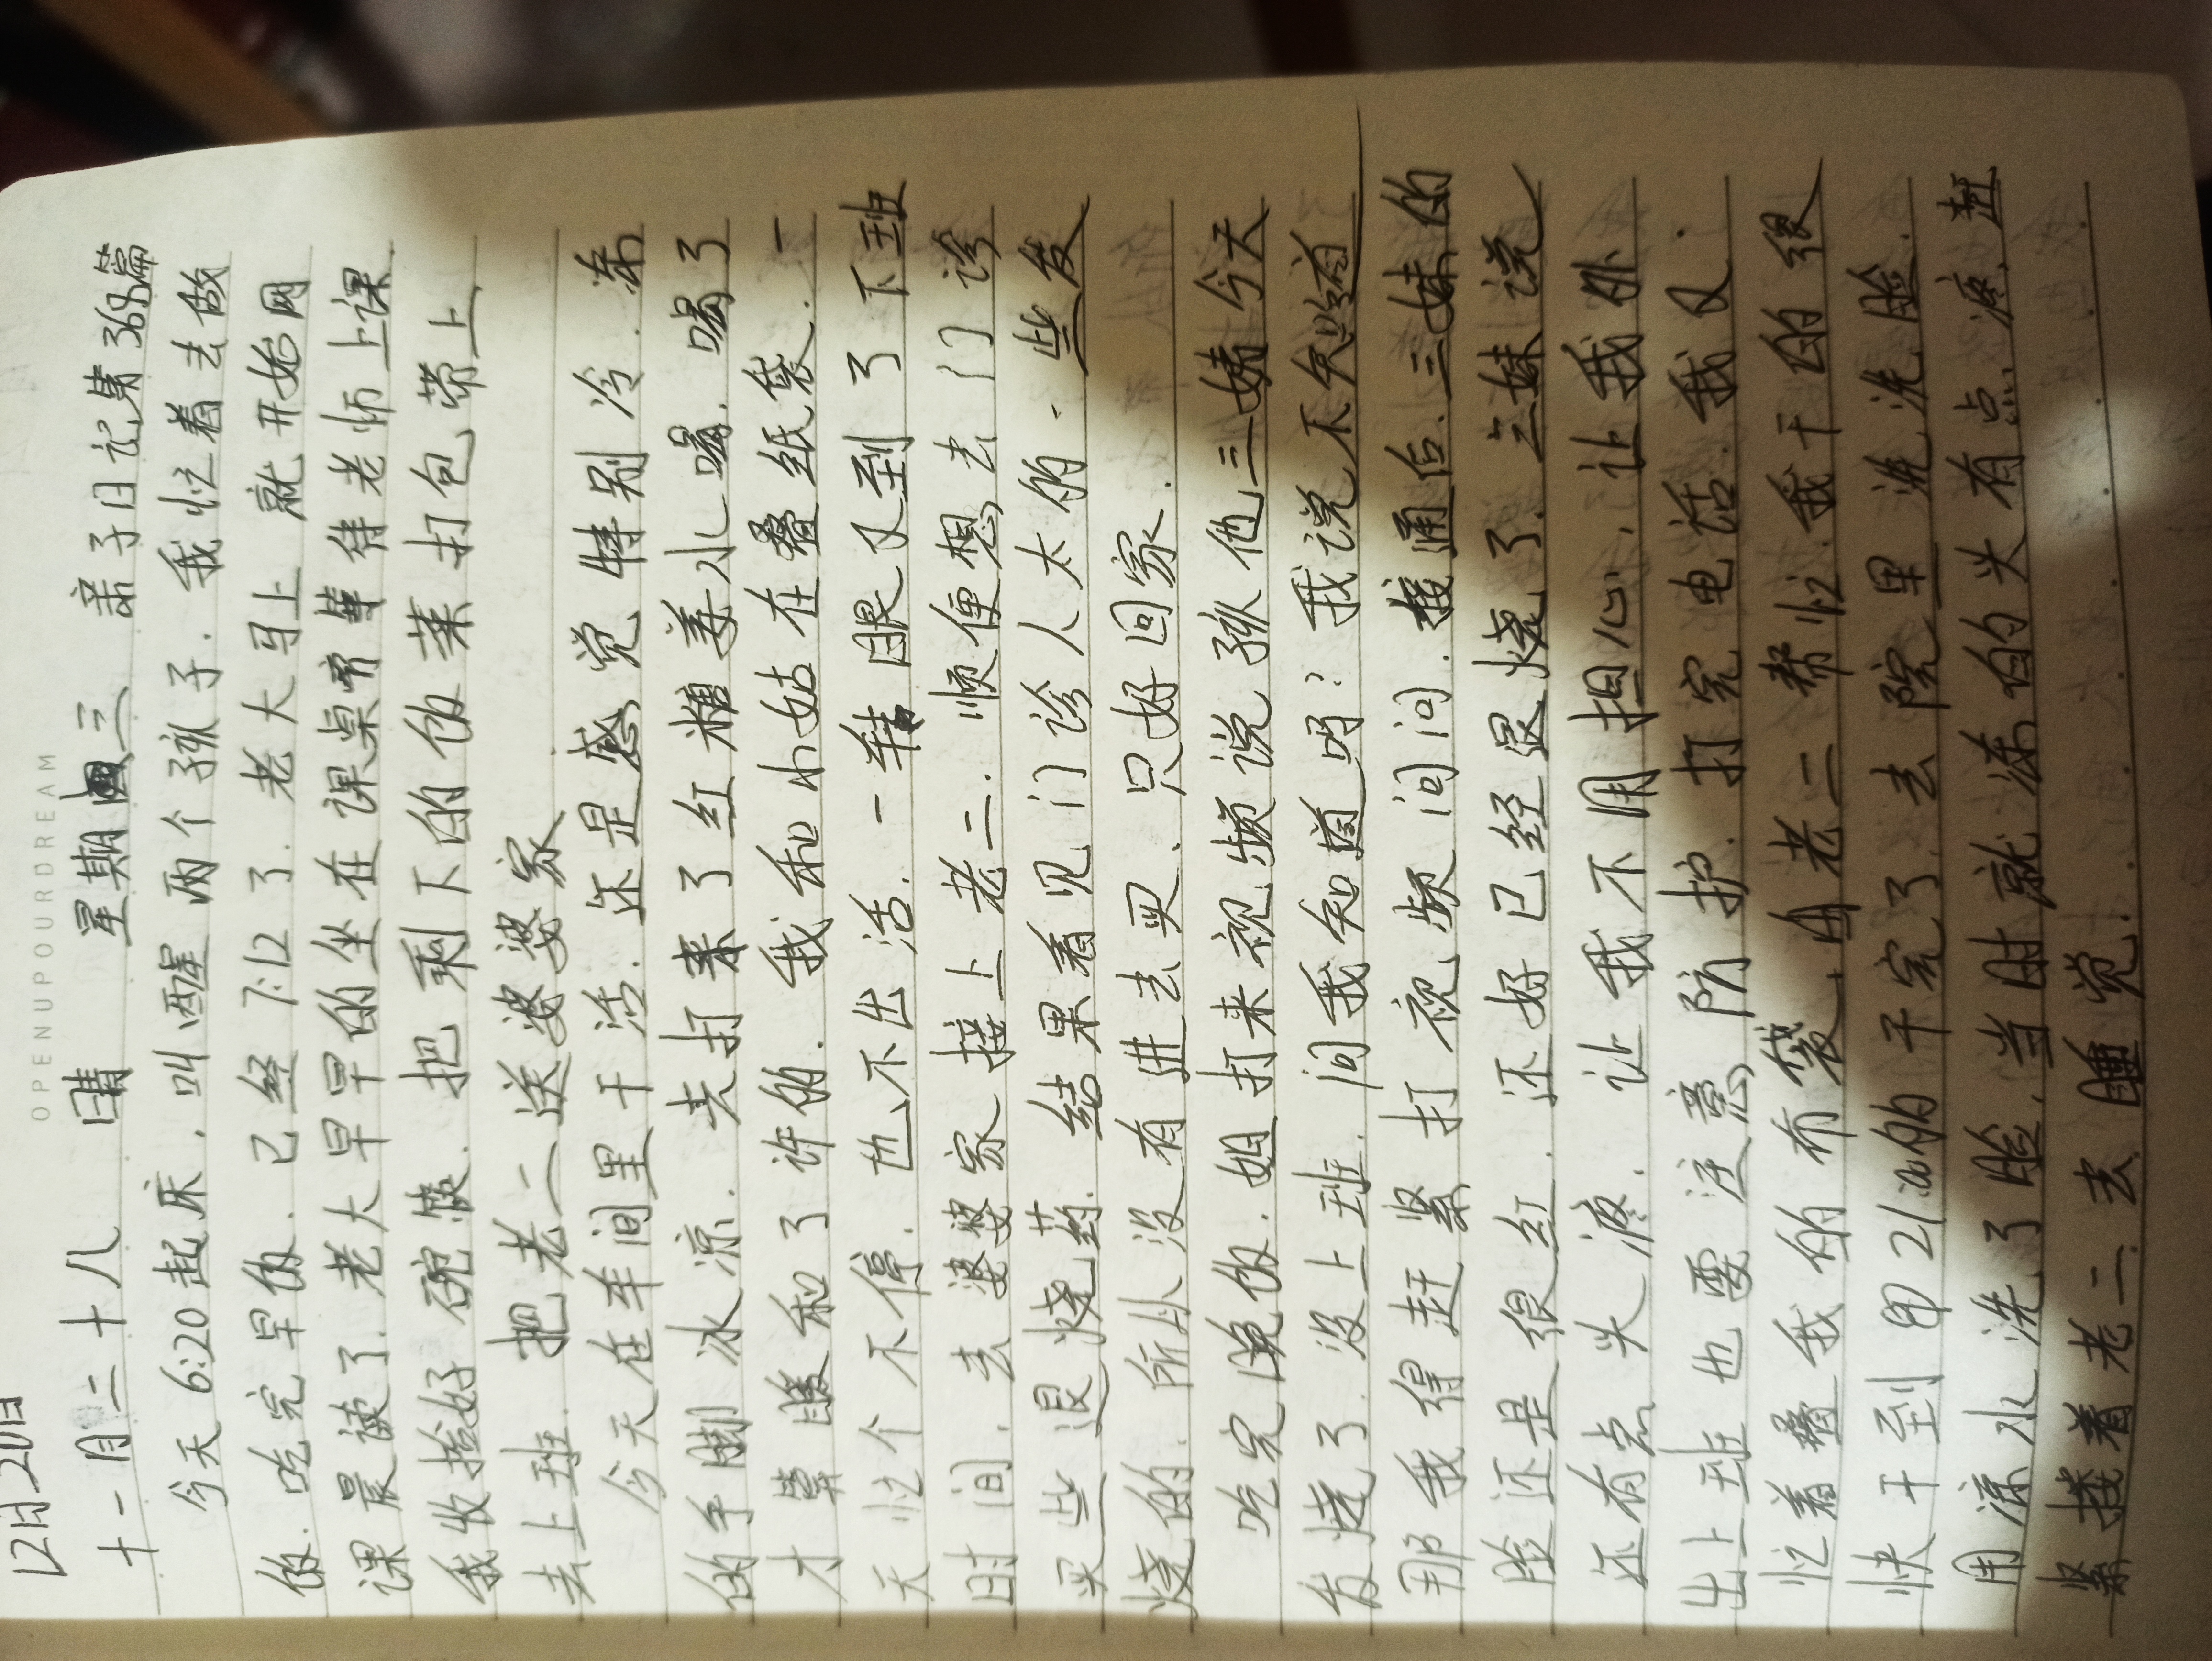 OPENUPOURDREAM
12月20日
十一月二十八 晴 星期三 亲子日记第368篇
今天6:20起床，叫醒两个孩子．我忙着去做
饭．吃完早饭．已经7:12了．老大马上就开始网
课晨读了．老大早早的坐在课桌旁等待老师上课
我收拾好碗筷．把剩下的饭菜打包带上
去上班．把老二送婆婆家
今天在车间里干活．还是感觉特别冷．冻
的手脚冰凉．去打来了红糖姜水喝．喝了
才算暖和了许的．我和小姑在叠纸袋．一
天忙个不停．也不出活．一转眼又到了下班
时间．去婆婆家接上老二．顺便想去门诊
买些退烧药．结果看见门诊人太的．些发
烧的．所以没有进去买、只好回家．
吃完晚饭．姐打来视频说孩他三姨今天
发烧了．没上班．问我知道吗？我说不知道
那我得赶紧打视频问问．接通后．三妹的
脸还是很红．还好已经退烧了．三妹说
还有点头疼．让我不用担心，让我
出上班也要注意防护．打完电话．我又．
忙着叠我的布袋，用老二帮忙．我干的很
快干到21:00的干完了．去院里洗洗脸．
用凉水洗了脸，当时就冻的头有点疼．赶
紧搂着老二去睡觉．